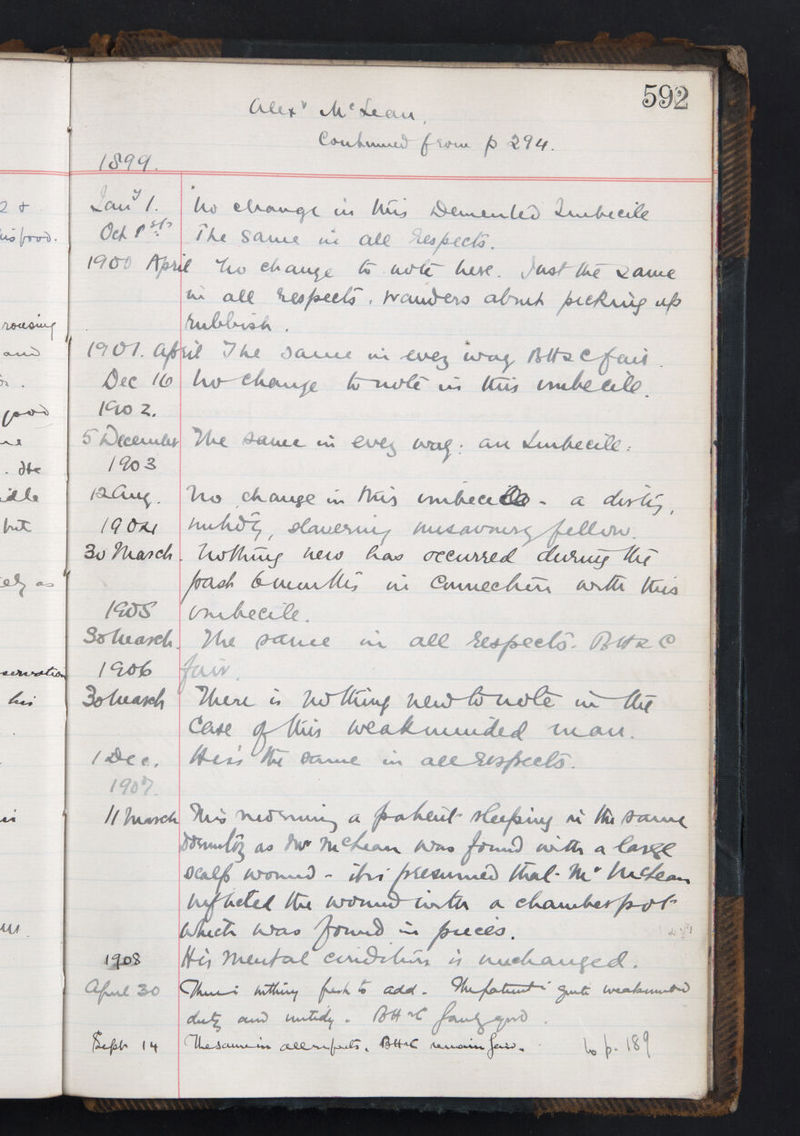 592
Alexr McLean.
Continued from p 294.
1899.
2 &
Jany 1. No change in this Demented Imbecile
his food.
Oct 1st The same in all respects.
1900 April No change to note here. Just the same
in all respects. Wanders about picking up
rousing
rubbish.
and
1901. April The same in every way BH & C fair.
Dec 16 No change to note in this imbecile.
good
1902.
5 December The same in every way: an Imbecile.
. He
1903
idle
12 Aug. No change in this imbecile - a dirty,
but
1904 untidy, slavering unsavoury fellow.
30 March. Nothing new has occurred during the
past 6 months in connection with this
ely as
1905 imbecile.
30 March. The same in all respects. BH & C
servation
1906 fair.
his
30 March There is nothing new to note in the
case of this weakminded man.
1 Dec. He is the same in all respects.
1907.
11 March This morning a patient sleeping in the same
Dormitory as Mr McLean was found with a large
scalp wound - it is presumed that Mr McLean
inflicted the wound with a chamberpot
which was found in pieces.
1908 His mental condition is unchanged.
April 30 There is nothing fresh to add. The patient is quite weakminded
dirty and untidy. BH & C fairly good.
Sept 14 The same in all respects. BH & C remain fair. to p. 189